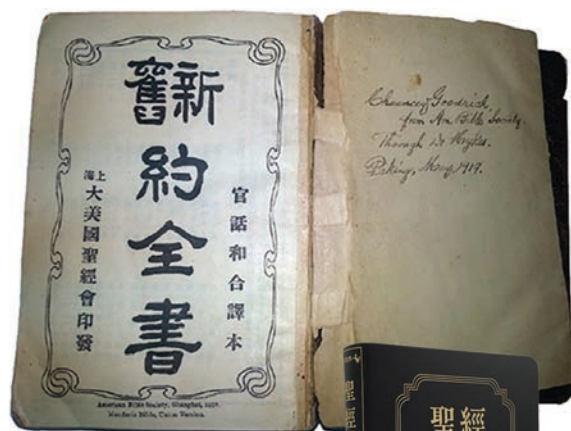 新舊約全書
官話和合譯本
上海大美國聖經會印發
American Bible Society, Shanghai, 1919.
Mandarin Bible, Union Version.
Chauncey Goodrich,
from Am. Bible Society.
Through Dr Hykes.
Peking, May, 1919.
聖經
聖經